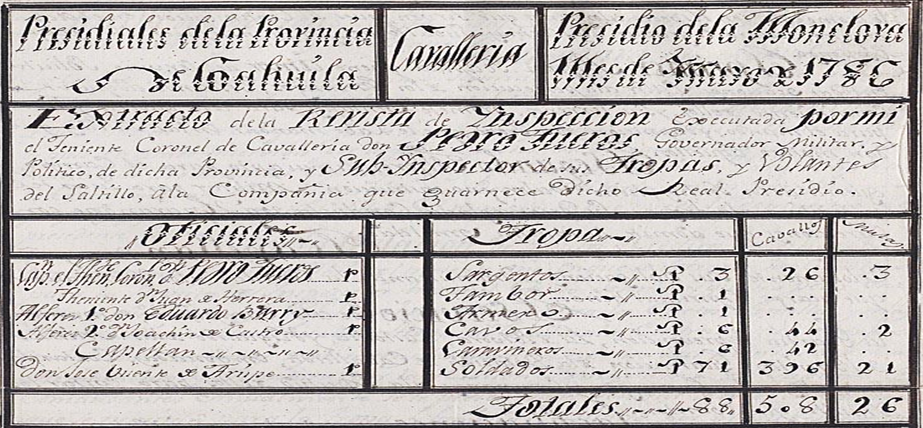 Presidiales de la Provincia
de Coahuila
Cavalleria
Presidio de la Monclova
Mes de Marzo 1786
Extracto de la Revista de Ynspeccion executada por mi
el Teniente Coronel de Cavalleria don Pedro Fueros Governador Militar, y
Politico, de dicha Provincia, y Sub-Inspector de sus Tropas, y Volantes
del Saltillo, ála Compañia que guarnece dicho Real Presidio.
Oficiales
Tropa
Cavallos
Mulas
Cap.n el Then. Coron.l d.n Pedro Fueros P
Sargentos P 3 26 3
Theniente d.n Juan de Herrera P
Tambor P 1
Alferez 1.º don Eduardo Barry P
Armero P 1
Alferez 2.º d.n Joachin de Castro P
Cavos P 6 44 2
Capellan
Caravineros P 6 42
don Jose Vicente de Arispe P
Soldados P 71 396 21
Totales 88 508 26